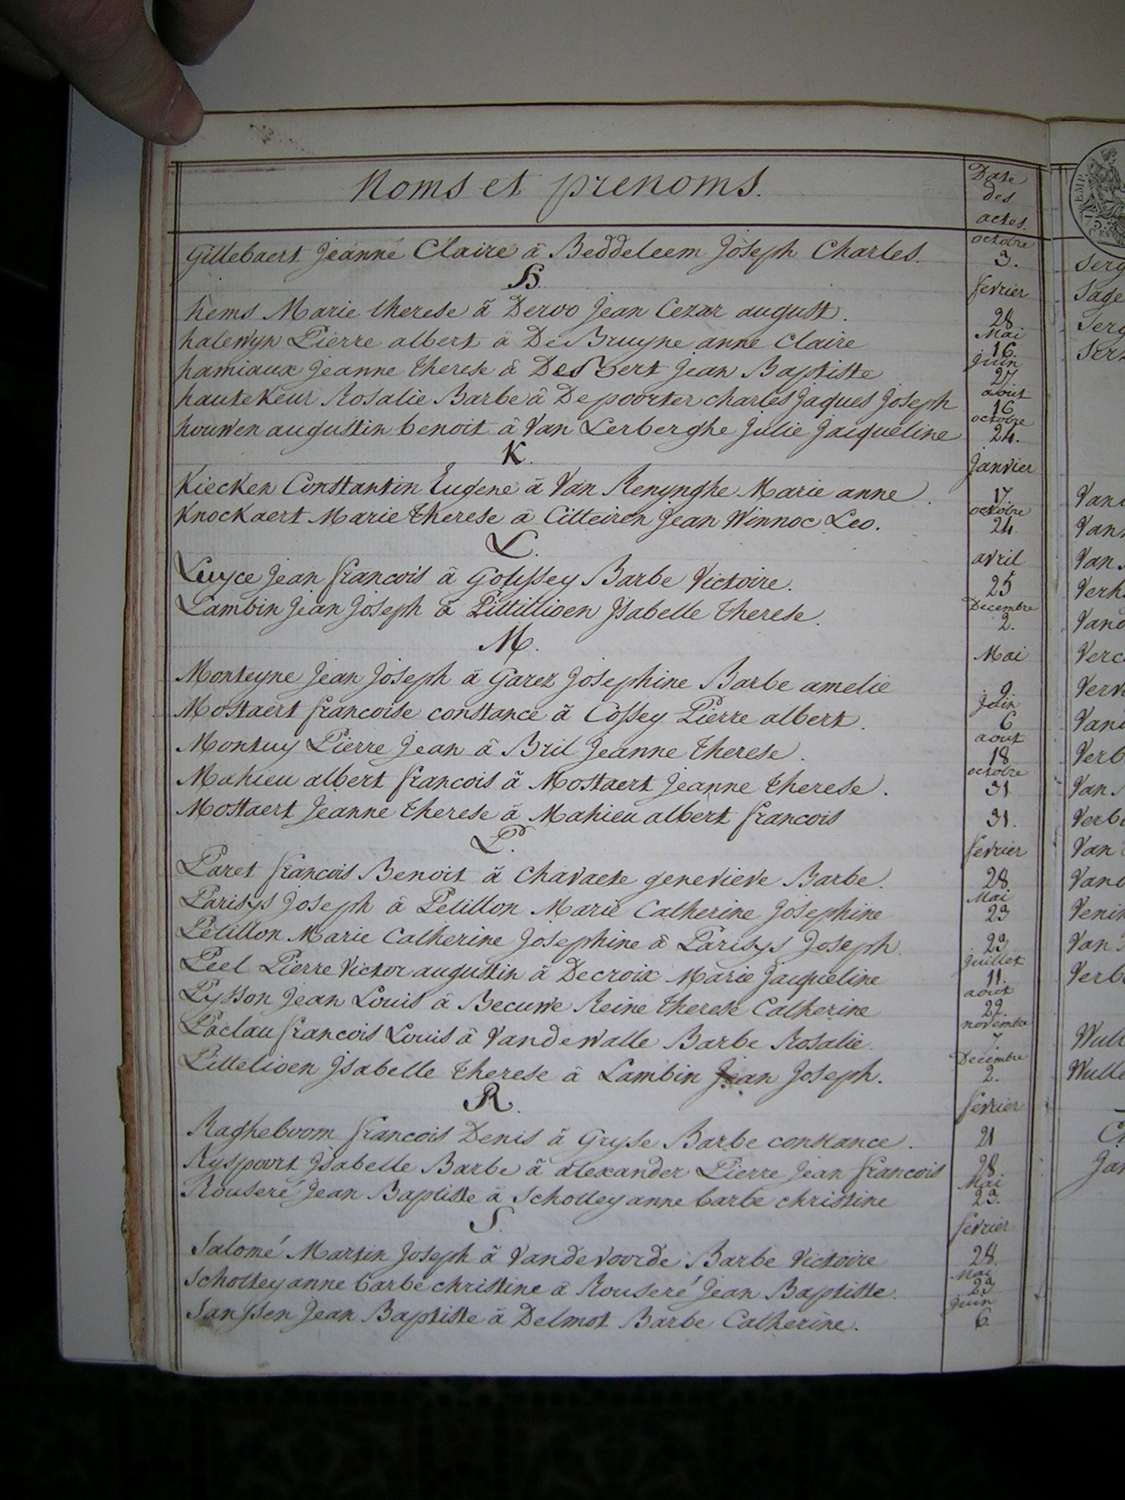 Noms et prenoms.
Date
des
actes
octobre
Gillebaert Jeanne Claire à Beddeleem Joseph Charles. 3.
H. fevrier
hems Marie therese à Dervo Jean Cezar august. 28
Mai
halewyn Pierre albert à De Bruyne anne Claire 16
Juin
hamiaux Jeanne therese à Des Bert Jean Baptiste 27
aout
hautekeur Rosalie Barbe à Depoorter charles Jaques Joseph 16
octobre
houwen augustin benoit à Van Lerberghe Julie Jacqueline 24.
K. Janvier
Kiecken Constantin Eugene à Van Renynghe Marie anne. 17.
octobre
Knockaert Marie therese à Citteiren Jean Winnoc Leo. 24
L. avril
Luyce Jean francois à Goussey Barbe Victoire. 25
Decembre
Lambin Jean Joseph à Pittillioen Isabelle Therese. 2.
M. Mai
Monteyne Jean Joseph à Garez Josephine Barbe amelie 9
Juin
Mostaert francoise constance à Cossey Pierre albert. 6
aout
Montuy Pierre Jean à Bril Jeanne therese. 18
octobre
Mahieu albert francois à Mostaert Jeanne therese. 31
Mostaert Jeanne therese à Mahieu albert francois 31.
P. fevrier
Paret francois Benoit à Chavaete genevieve Barbe. 28
Mai
Parisys Joseph à Petillon Marie Catherine Josephine 23
Petillon Marie Catherine Josephine à Parisys Joseph. 23
Juillet
Peel Pierre Victor augustin à Decroix Marie Jacqueline 11.
aout
Pysson Jean Louis à Becuwe Reine therese Catherine 22.
novembre
Paclau francois Louis à Vandewalle Barbe Rosalie. 7.
Decembre
Pittelioen Isabelle therese à Lambin Jean Joseph. 2.
R. fevrier
Ragheboom francois Denis à Gryse Barbe constance. 21
Ryspoort Isabelle Barbe à alexander Pierre Jean francois 28.
Mai
Rouseré Jean Baptiste à Scholley anne barbe christine 23.
S. fevrier
Salomé Martin Joseph à Vandevoorde Barbe Victoire 28.
Mai
Scholley anne barbe christine à Rouseré Jean Baptiste. 23
Juin
Sanssen Jean Baptiste à Delmot Barbe Catherine. 6